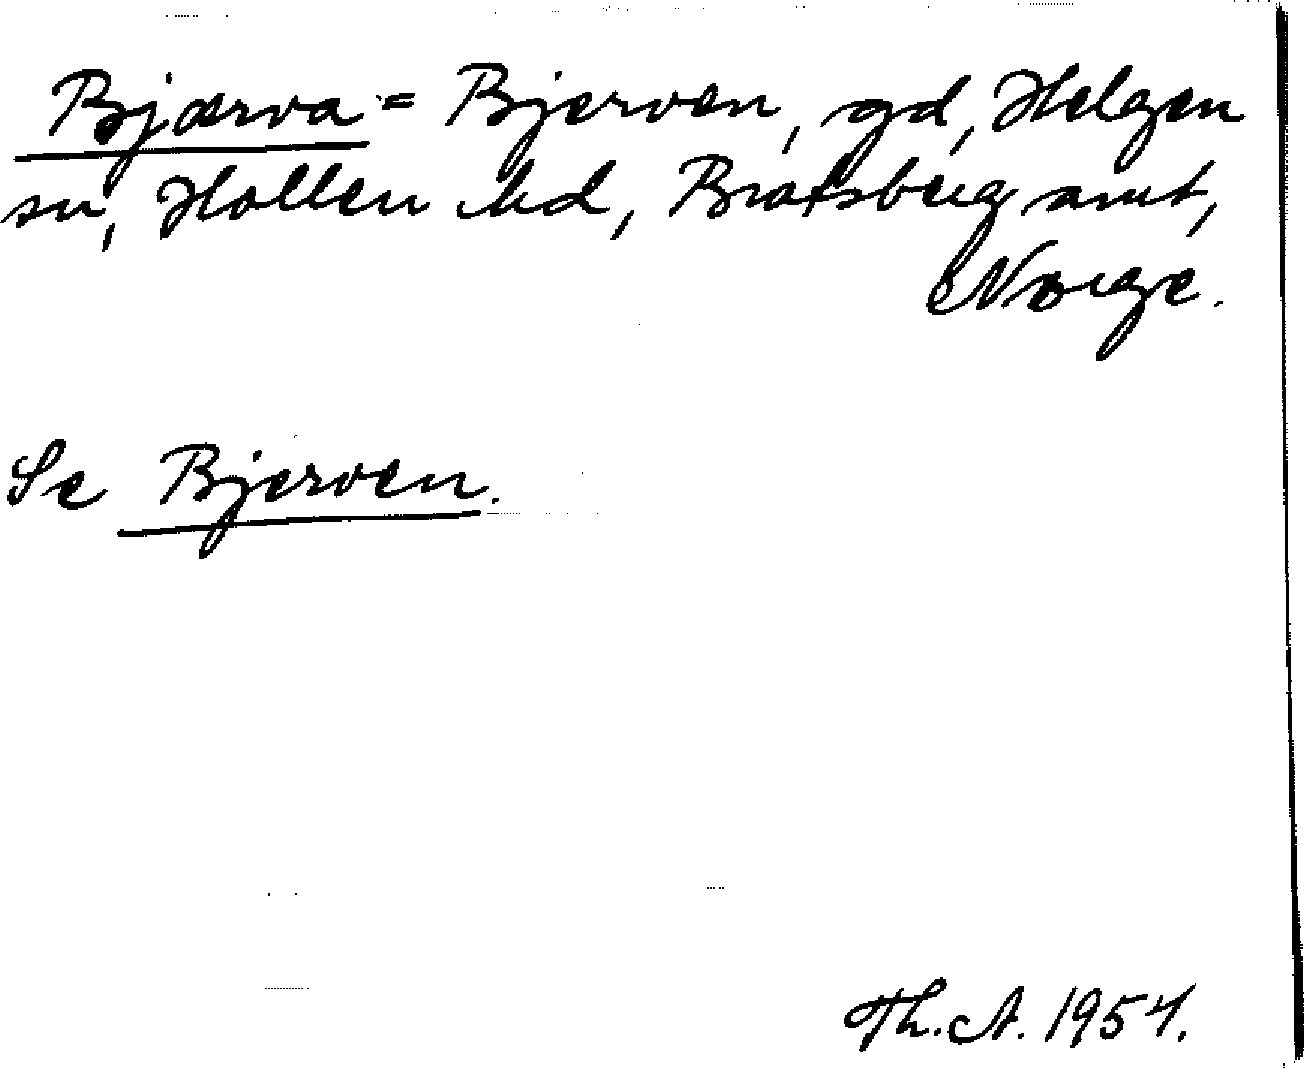 Bjærva = Bjerven, gd, Helgen
sn, Hollen hd, Bratsberg amt,
Norge.
Se Bjerven.
Th. A. 1954.